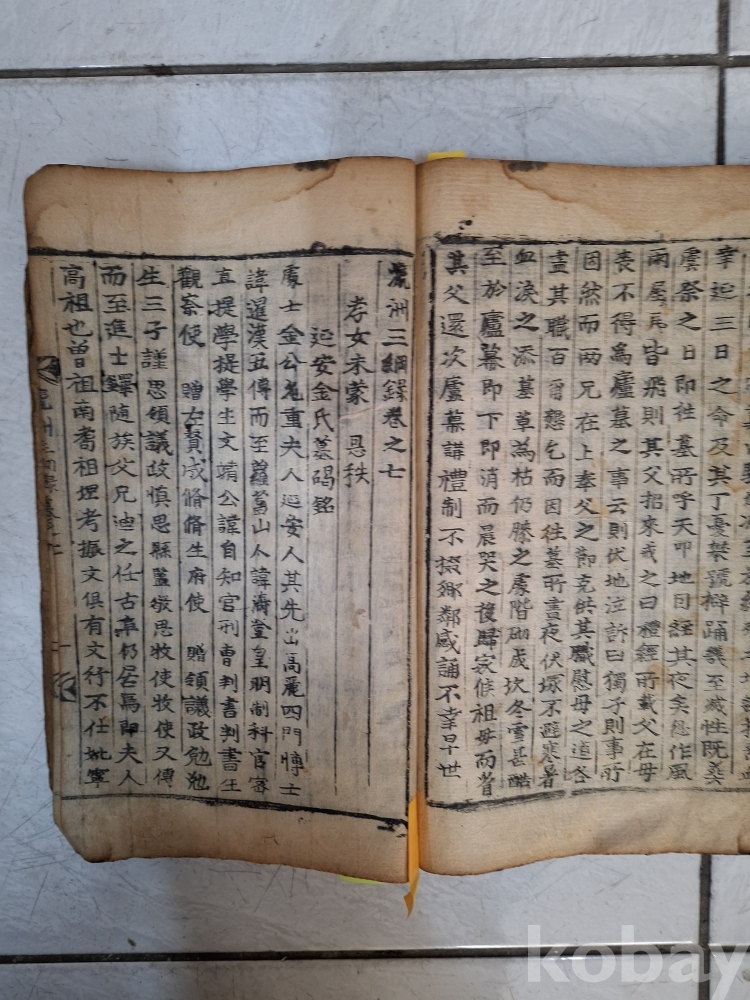 幸延三日之命及其丁憂擗踊幾至滅性旣葬
虞祭之日卽往墓所呼天叩地因諠其夜矣忽作風
雨屋瓦皆飛則其父招來戒之曰禮經所戴父在母
喪不得爲廬墓之事云則伏地泣訴曰獨子則事所
因然而兩兄在上奉父之節克供其職慰母之道各
盡其職百爾懇乞而因往墓所晝夜伏塚不避寒暑
血淚之添墓草爲枯仍膝之處階砌成坎冬雪甚酷
至於廬幕卽下卽消而晨哭之後歸家候祖母而省
其父還次廬幕講禮制不掇鄕鄰感誦不幸早世
三綱錄卷之七
孝女未蒙 恩秩
延安金氏墓碣銘
處士金公名重夫人延安人其先出高麗四門博士
諱暹漢五傳而至蘿蔔山人諱濤登皇明制科官審
直提學提學生文靖公諱自知官刑曹判書判書生
觀察使 贈左賛成脩脩生府使 贈領議政勉勉
生三子謹思領議政愼思縣監 思牧使牧使又傳
而至進士鐸隨族父兄迪之任古阜仍居焉卽夫人
高祖也曾祖南耈祖珵考振文俱有文行不仕妣寧
kobay